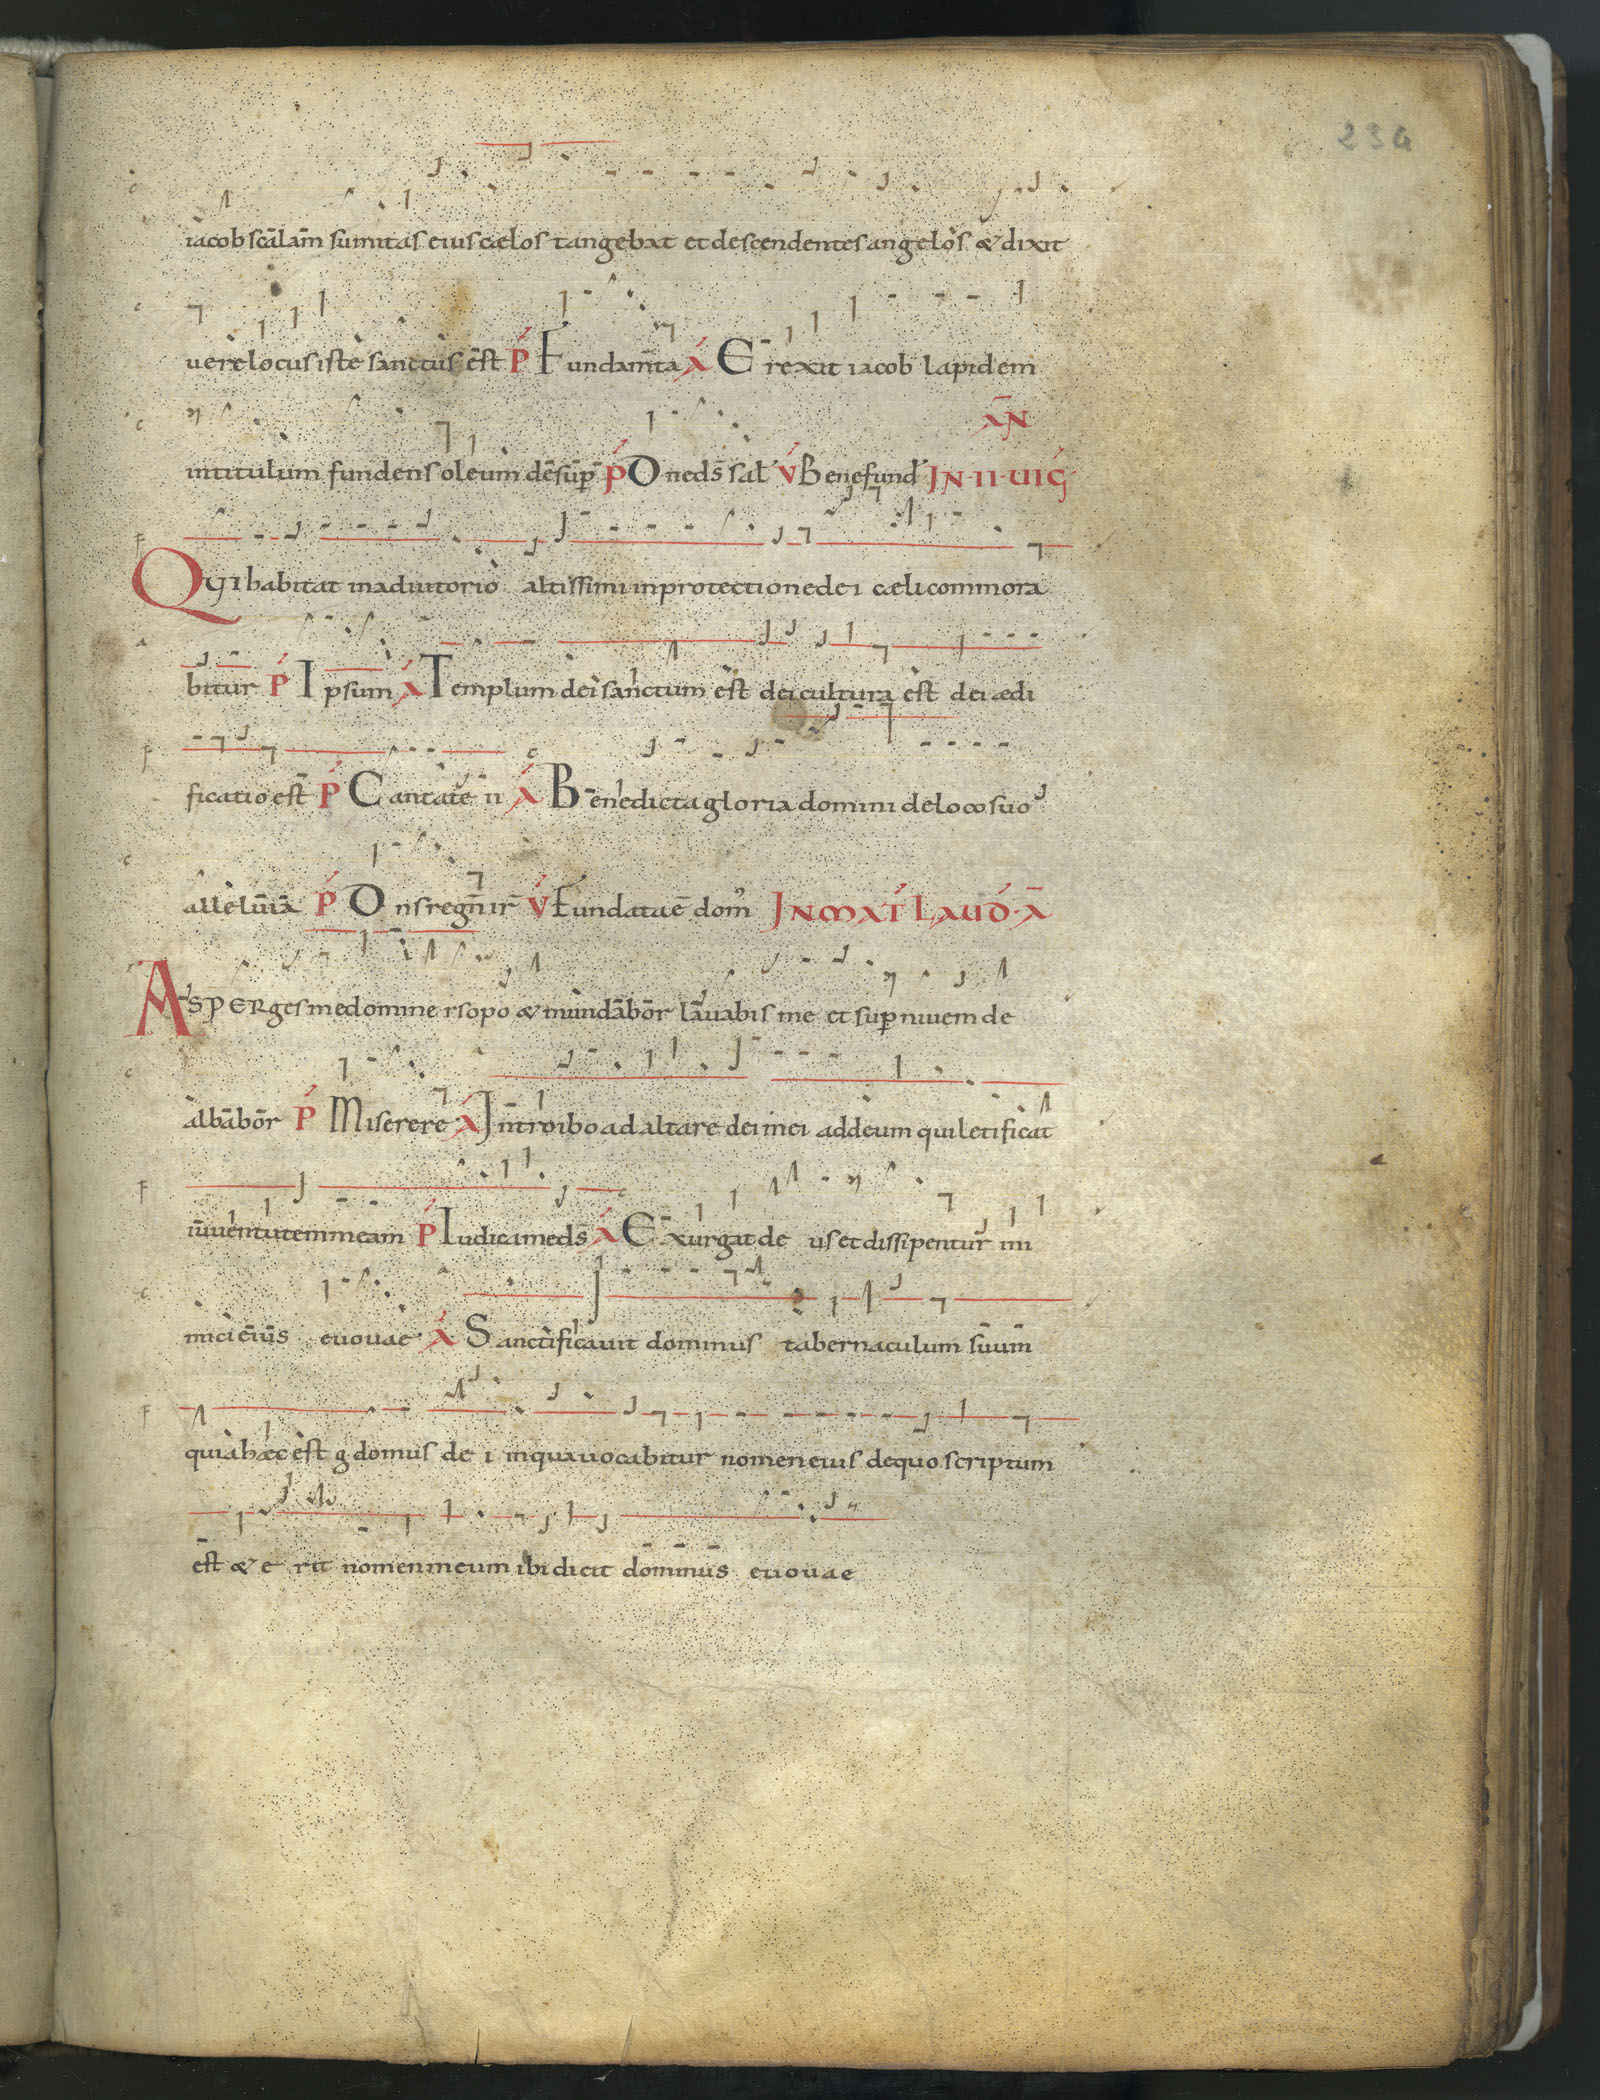 234
iacob scalam sumitas eius cælos tangebat et descendentes angelos & dixit
vere locus iste sanctus est P Fundam̄ta A Erexit iacob lapidem
AN
intitulum fundens oleum desup̄ P Dn̄e ds̄ sal V Bene fund IN·II·UIG
QUI habitat in adiutorio altissimi in protectione dei cæli commora
bitur P Ipsum A Templum dei sanctum est dei cultura est dei ædi
ficatio est P Cantate ii A Benedicta gloria domini de loco suo
alleluia P Dns regn̄ ir V Fundata ē dom IN MAT LAUD·A
ASPERges me domine ysopo & mundabor lavabis me et sup nivem de
albabor P Miserere A Introibo ad altare dei mei ad deum qui letificat
iuventutem meam P Iudica me ds̄ A Exurgat de us et dissipentur ini
mici eius euouae A Sanctificavit dominus tabernaculum suum
quia hæc est g domus de i in qua vocabitur nomen eius de quo scriptum
est & e rit nomen meum ibi dicit dominus euouae